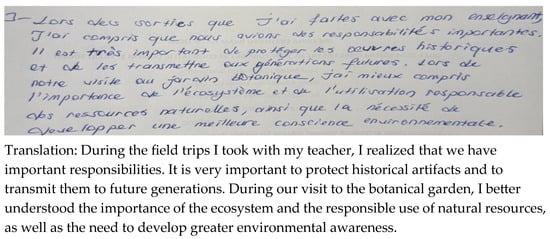 3- Lors des sorties que j'ai faites avec mon enseignant,
J'ai compris que nous avions des responsabilités importantes.
Il est très important de protéger les œuvres historiques
et de les transmettre aux générations futures. Lors de
notre visite au jardin botanique, j'ai mieux compris
l'importance de l'écosystème et de l'utilisation responsable
des ressources naturelles, ainsi que la nécessité de
développer une meilleure conscience environnementale.
Translation: During the field trips I took with my teacher, I realized that we have
important responsibilities. It is very important to protect historical artifacts and to
transmit them to future generations. During our visit to the botanical garden, I better
understood the importance of the ecosystem and the responsible use of natural resources,
as well as the need to develop greater environmental awareness.